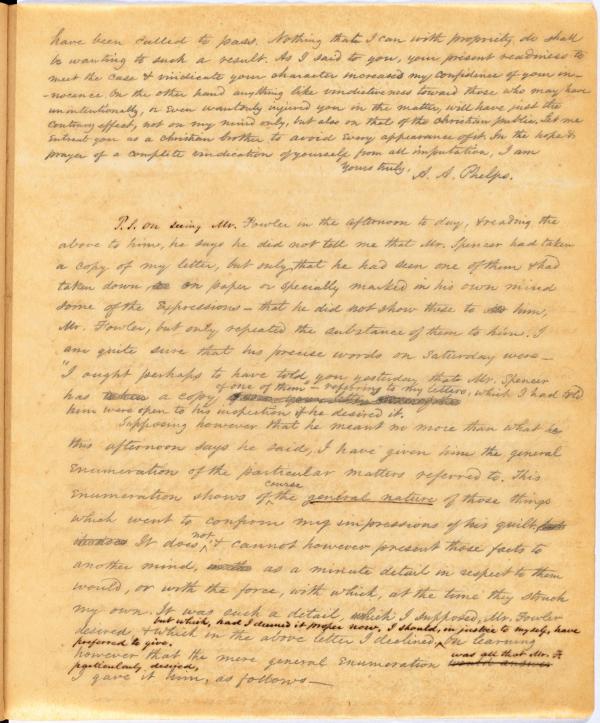 have been called to pass. Nothing that I can with propriety do shall
be wanting to such a result. As I said to you, your present readiness to
meet the case & vindicate your character increases my confidence of your in-
-nocence. On the other hand anything like vindictiveness toward those who may have
unintentionally, or even wantonly injured you in the matter, will have just the
contrary effect, not on my mind only, but also on that of the christian public. Let me
entreat you as a christian brother to avoid every appearance of it. In the hope &
prayer of a complete vindication of yourself from all imputation, I am
Yours truly,
A. A. Phelps.
P.S. On seeing Mr. Fowler in the afternoon to day, & reading the
above to him, he says he did not tell me that Mr. Spencer had taken
a copy of my letter, but only that he had seen one of them & had
taken down on paper or specially marked in his own mind
some of the expressions – that he did not show these to him,
Mr. Fowler, but only repeated the substance of them to him. I
am quite sure that his precise words on Saturday were –
"I ought perhaps to have told you yesterday that Mr. Spencer
has taken a copy of one of them" – referring to my letters, which I had told
him were open to his inspection if he desired it.
Supposing however that he meant no more than what he
this afternoon says he said, I have given him the general
enumeration of the particular matters referred to. This
enumeration shows of course the general nature of those things
which went to confirm my impressions of his guilt,
It does not & cannot however present those facts to
another mind, as a minute detail in respect to them
would, or with the force, with which, at the time they struck
my own. It was such a detail, which I supposed, Mr. Fowler
desired & which in the above letter I declined,
but which, had I deemed it proper now, I should, in justice to myself, have
preferred to give. On learning
however that the mere general enumeration was all that Mr. F.
particularly desired, would answer
I gave it him, as follows –